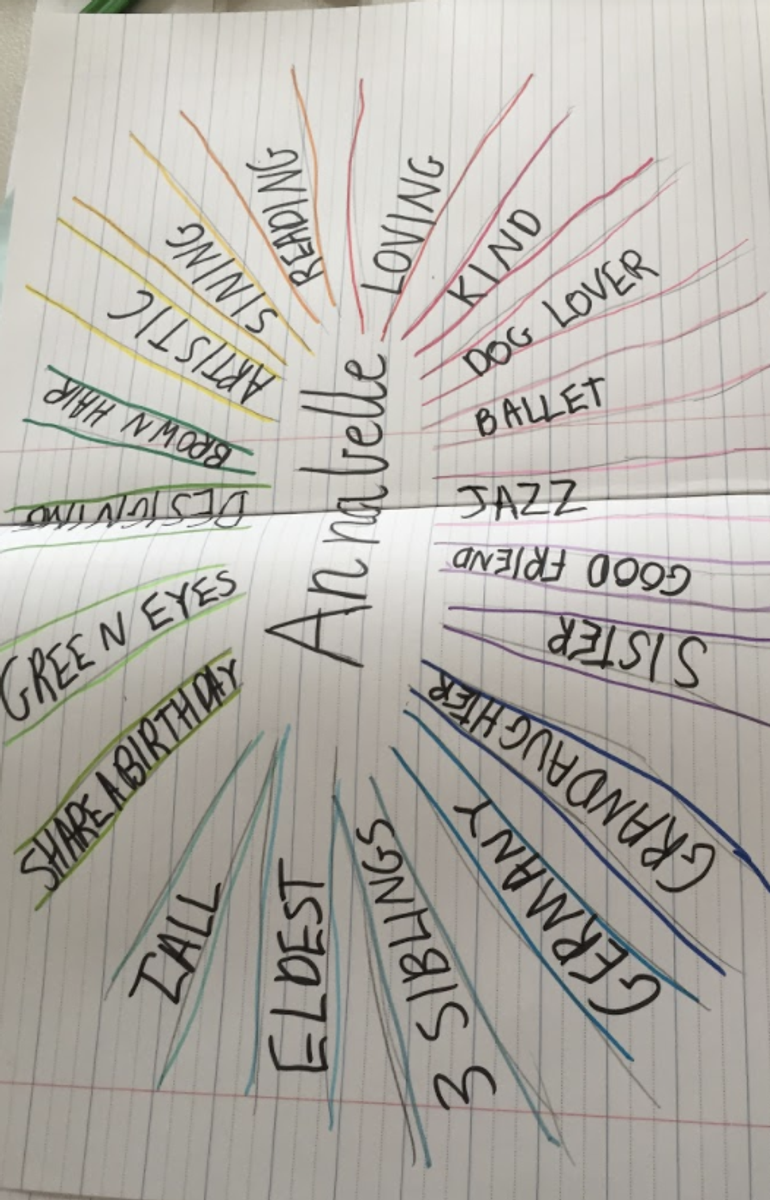 Annabelle
LOVING
KIND
DOG LOVER
BALLET
JAZZ
GOOD FRIEND
SISTER
GRANDAUGHTER
GERMANY
3 SIBLINGS
ELDEST
TALL
SHARE A BIRTHDAY
GREEN EYES
DESIGNING
BROWN HAIR
ARTISTIC
SINING
READING